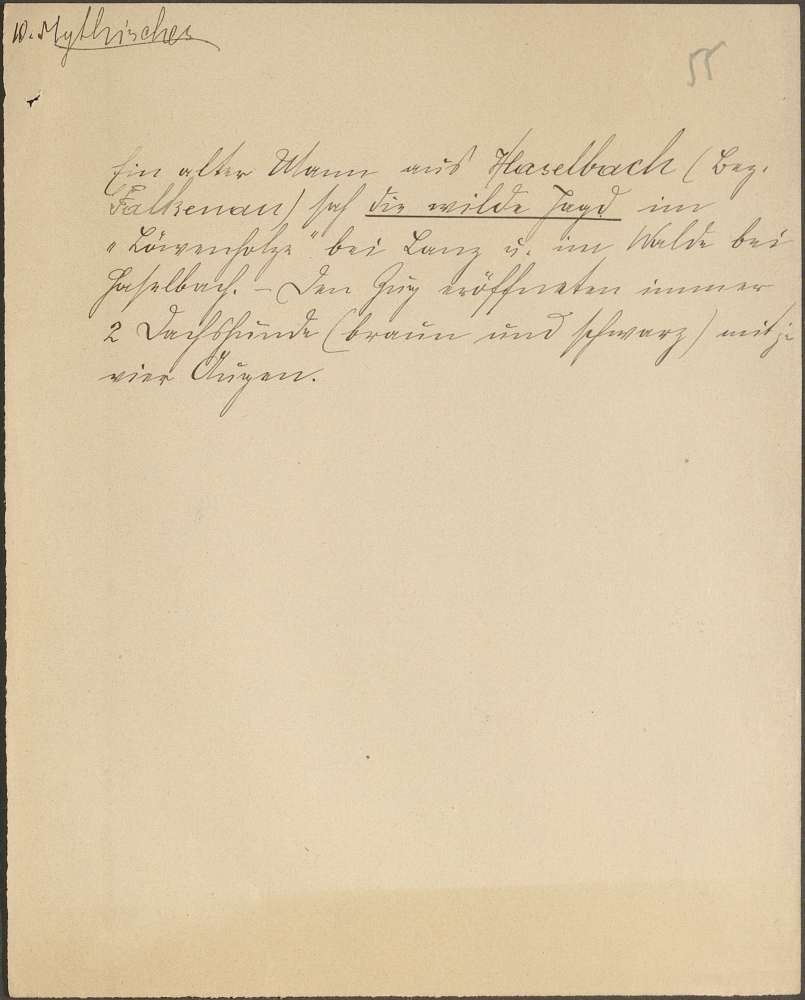 10. Mythisches
55
Ein alter Mann aus Haselbach (Bez.
Falkenau) sah die wilde Jagd im
"Löwenholze" bei Lanz u. im Walde bei
Haselbach. – Den Zug eröffneten immer
2 Dachshunde (braun und schwarz) mit je
vier Augen.